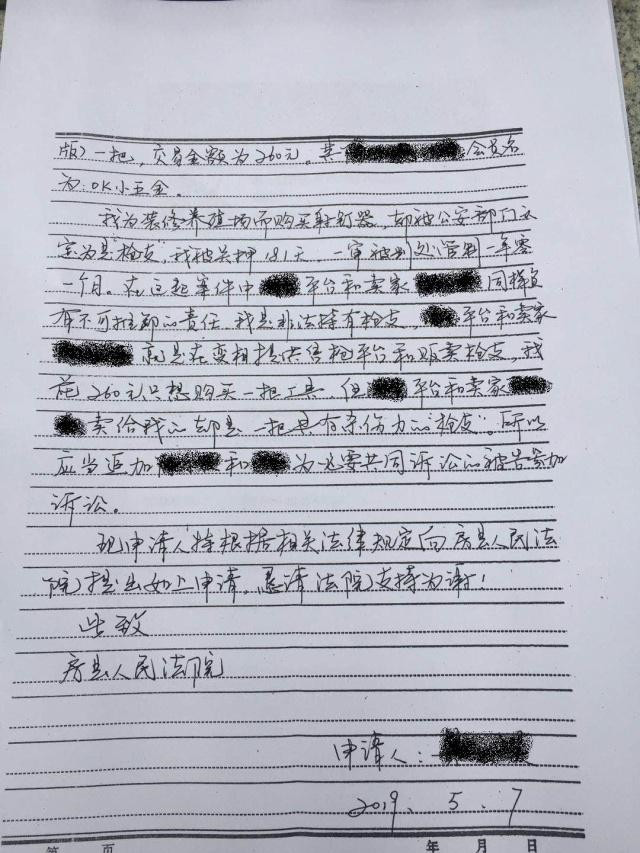 版）一把，交易金额为260元。其 会员名
为：OK小五金。
我为装修养殖场而购买射钉器，却被公安部门认
定为是“枪支”，我被关押181天，一审被判处管制一年零
一个月。在这起案件中 平台和卖家 同样负
有不可推卸的责任，我是非法持有枪支， 平台和卖家
就是在变相提供售枪平台和贩卖枪支，我
花260元只想购买一把工具，但 平台和卖家
卖给我的却是一把具有杀伤力的“枪支”。所以
应当追加 和 为必要共同诉讼的被告参加
诉讼。
现申请人特根据相关法律规定向房县人民法
院提出如上申请，恳请法院支持为谢！
此致
房县人民法院
申请人：
2019.5.7
第 页 年 月 日